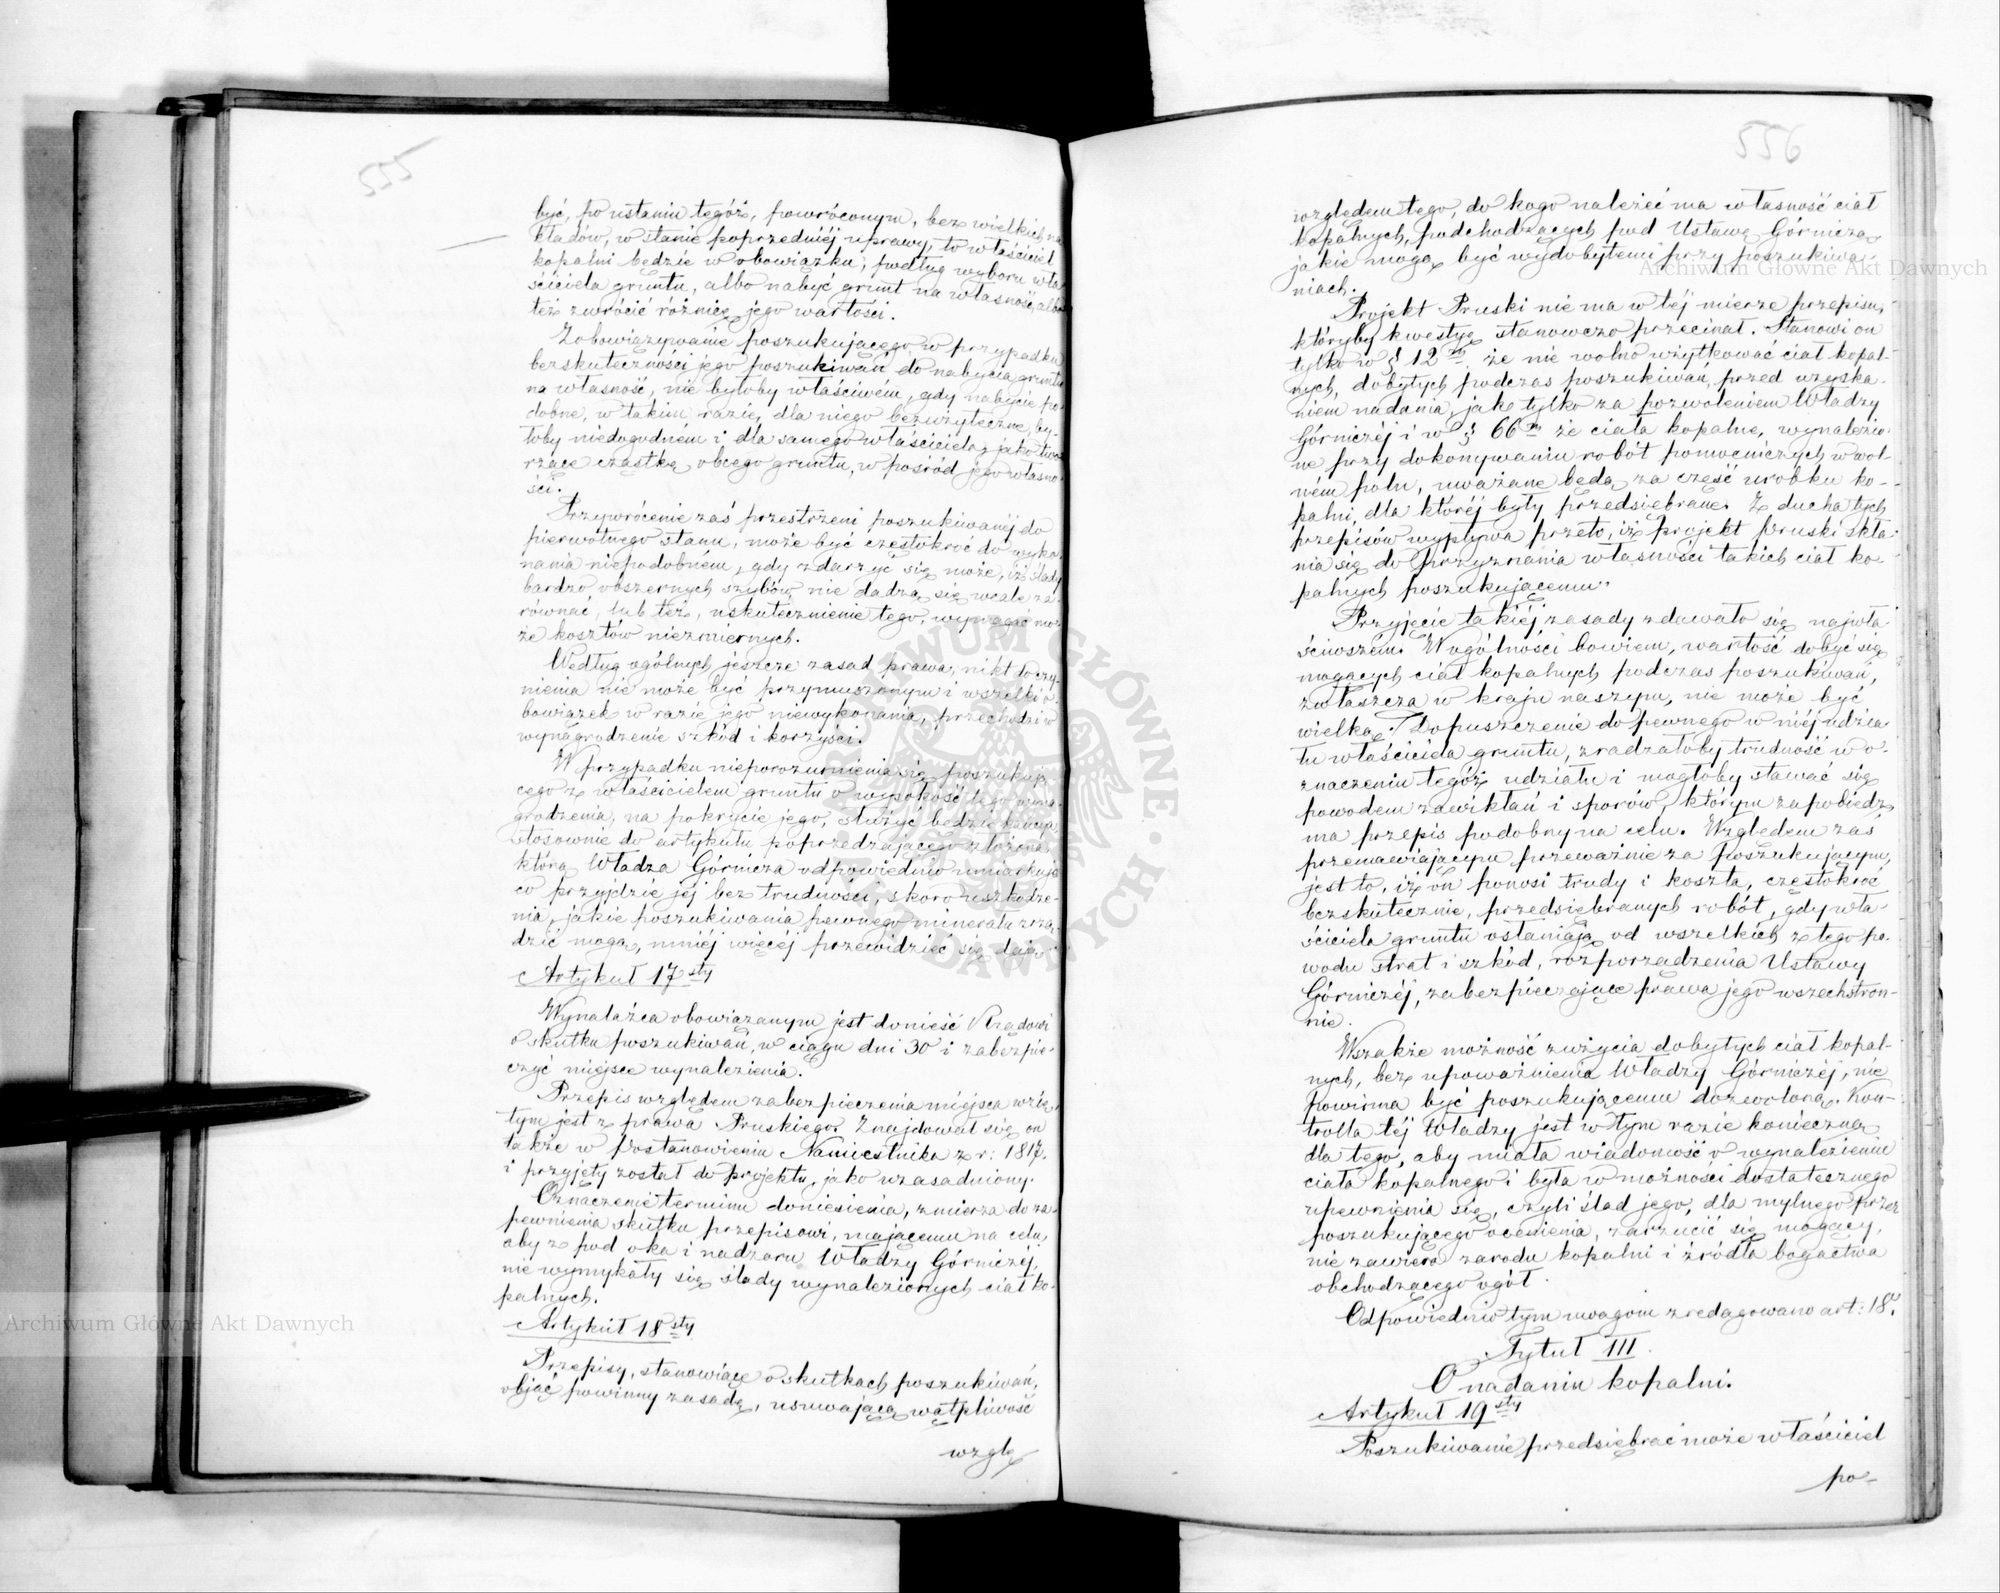 555
być, po ustaniu tegóż, powróconym, bez wielkich na
kładów, w stanie poprzedniéj uprawy, to właściciel
kopalni będzie w obowiązku, podług wyboru wła
ściciela gruntu, albo nabyć grunt na własność, albo
też zwrócić różnicę jego wartości.
Zobowiązywanie poszukującego w przypadku
bezskuteczności jego poszukiwań do nabycia gruntu
na własność, nie byłoby właściwém, gdy nabycie po-
dobne, w takim razie, dla niego bezużyteczne, by-
łoby niedogodném i dla samego właściciela, jako two
rzące cząstkę obcego gruntu, w pośród jego własno
ści.
Przywrócenie zaś przestrzeni poszukiwanéj do
pierwotnego stanu, może być częstokroć do wyko
nania niepodobném, gdy zdarzyć się może, iż ślady
bardzo obszernych szybów nie dadzą się wcale za-
równać, lub też, uskutecznienie tego, wymagać mo
że kosztów niezmiernych.
Według ogólnych jeszcze zasad prawa, nikt do czy-
nienia nie może być przymuszonym i wszelki o-
bowiązek w razie jego niewykonania, przechodzi w
wynagrodzenie szkód i korzyści.
W przypadku nieporozumienia się poszukują-
cego z właścicielem gruntu o wysokość tego wyna-
grodzenia, na pokrycie jego, służyć będzie kaucya
stosownie do artykułu poprzedzającego złożona,
którą Władza Górnicza odpowiednio umiarkuje
co przyjdzie jéj bez trudności, skoro uszkodze-
nia, jakie poszukiwania pewnego minerału zrzą
dzić mogą, mniéj więcéj przewidzieć się dają.
Artykuł 17sty
Wynalazca obowiązanym jest donieść Rządowi
o skutku poszukiwań, w ciągu dni 30 i zabezpie-
czyć miejsce wynalezienia.
Przepis względem zabezpieczenia miejsca wzię-
tym jest z prawa Pruskiego. Znajdował się on
także w Postanowieniu Namiestnika z r: 1817.
i przyjęty został do projektu, jako uzasadniony.
Oznaczenie terminu doniesienia, zmierza do za-
pewnienia skutku przepisowi, mającemu na celu,
aby z pod oka i nadzoru Władzy Górniczéj,
nie wymykały się ślady wynalezionych ciał ko-
palnych.
Artykuł 18sty
Przepisy, stanowiące o skutkach poszukiwań,
objąć powinny zasadę, usuwającą wątpliwość
wzglę
556
względem tego, do kogo należeć ma własność ciał
kopalnych, podchodzących pod Ustawę Górniczą,
jakie mogą być wydobytemi przy poszukiwa-
niach.
Projekt Pruski nie ma w téj mierze przepisu,
któryby kwestyę stanowczo przecinał. Stanowi on
tylko w § 12m że nie wolno użytkować ciał kopal-
nych, dobytych podczas poszukiwań, przed uzyska-
niem nadania, jak tylko za pozwoleniem Władzy
Górniczéj i w § 66m że ciała kopalne, wynalezio-
ne przy dokonywaniu robót pomocniczych w wol-
ném polu, uważane będą za część urobku ko-
palni, dla któréj były przedsiębrane. Z ducha tych
przepisów wypływa przeto, iż projekt Pruski skła
nia się do przyznania własności takich ciał ko-
palnych poszukującemu.
Przyjęcie takiéj zasady zdawało się najwła
ściwszém. W ogólności bowiem, wartość dobyć się
mogących ciał kopalnych podczas poszukiwań,
zwłaszcza w kraju naszym, nie może być
wielką. Dopuszczenie do pewnego w niéj udzia
łu właściciela gruntu, zradzałoby trudność w o-
znaczeniu tegóż udziału i mogłoby stawać się
powodem zawikłań i sporów, którym zapobiedz
ma przepis podobny na celu. Względem zaś
przemawiającym przeważnie za poszukującym,
jest to, iż on ponosi trudy i koszta, częstokroć
bezskutecznie, przedsiębranych robót, gdy wła-
ściciela gruntu ostaniają od wszelkich z tego po-
wodu strat i szkód, rozporządzenia Ustawy
Górniczéj, zabezpieczające prawa jego wszechstron-
nie.
Wszakże możność zużycia dobytych ciał kopal-
nych, bez upoważnienia Władzy Górniczéj, nie
powinna być poszukującemu dozwoloną. Kon-
trolla téj Władzy jest w tym razie konieczną
dla tego, aby miała wiadomość o wynalezieniu
ciała kopalnego i była w możności dostatecznego
upewnienia się, czyli ślad jego, dla mylnego przez
poszukującego ocenienia, zarzucić się mogący,
nie zawiera zarodu kopalni i źródła bogactwa
obchodzącego ogół.
Odpowiednio tym uwagom zredagowano art: 18.
Tytuł III.
O nadaniu kopalni.
Artykuł 19sty
Poszukiwanie przedsiębrać może właściciel
po-
Archiwum Główne Akt Dawnych
Archiwum Główne Akt Dawnych
ARCHIWUM GŁÓWNE AKT DAWNYCH